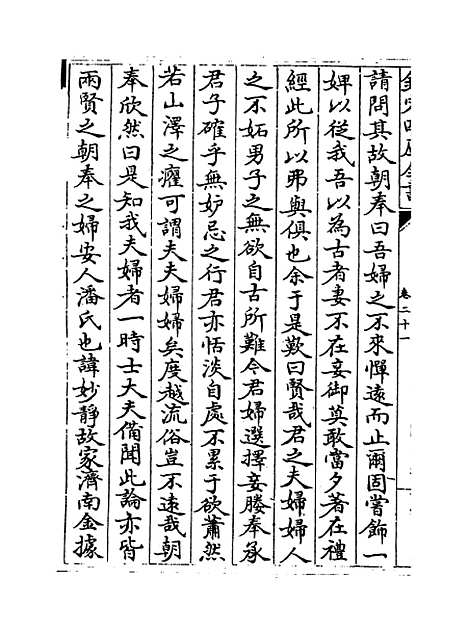 欽定四庫全書
卷二十一
請問其故朝奉曰吾婦之不來憚遠而止爾固嘗飾一
婢以從我吾以為古者妻不在妾御莫敢當夕著在禮
經此所以弗與俱也余于是歎曰賢哉君之夫婦婦人
之不妬男子之無欲自古所難今君婦選擇妾媵奉承
君子確乎無妒忌之行君亦恬淡自處不累于欲蕭然
若山澤之癯可謂夫夫婦婦矣度越流俗豈不遠哉朝
奉欣然曰是知我夫婦者一時士大夫備聞此論亦皆
兩賢之朝奉之婦安人潘氏也諱妙靜故家濟南金據